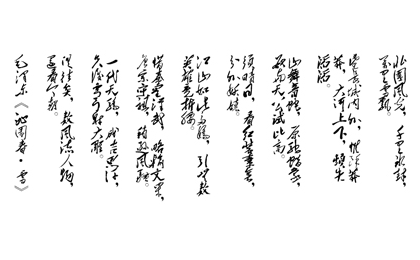 北国风光，千里冰封，
万里雪飘。
望长城内外，惟余莽
莽，大河上下，顿失
滔滔。
山舞银蛇，原驰蜡象，
欲与天公试比高。
须晴日，看红装素裹，
分外妖娆。
江山如此多娇，引无数
英雄竞折腰。
惜秦皇汉武，略输文采，
唐宗宋祖，稍逊风骚。
一代天骄，成吉思汗，
只识弯弓射大雕。
俱往矣，数风流人物，
还看今朝。
毛泽东《沁园春·雪》